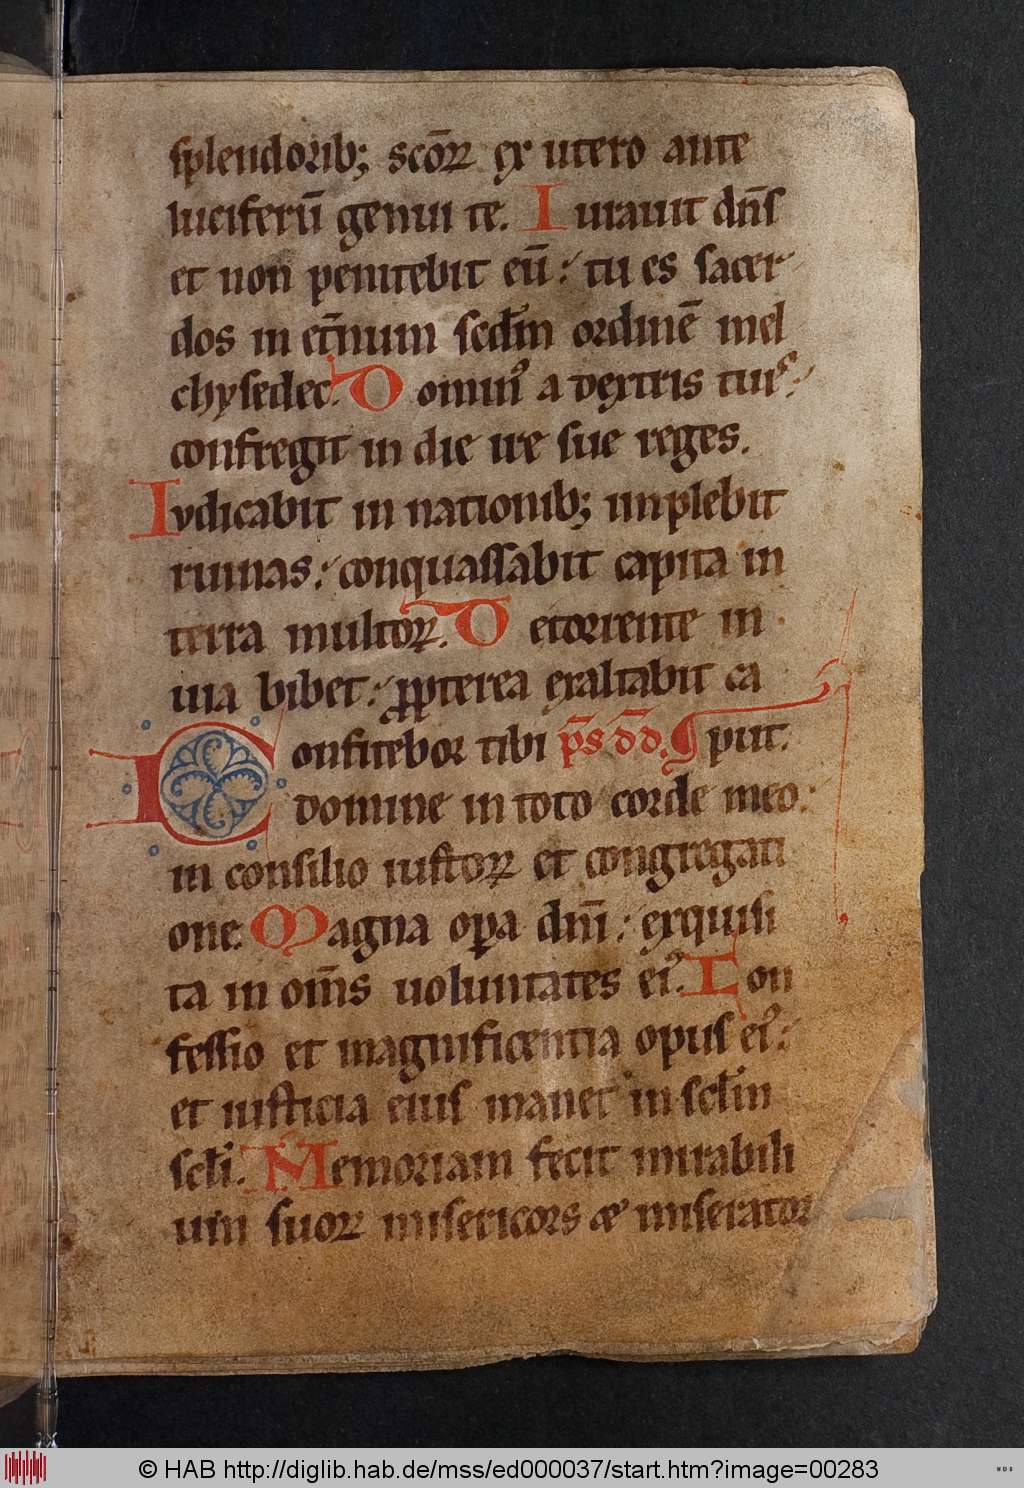 splendorib; scōꝝ ex utero ante
luciferū genui te. Iurauit dn̄s
et non penitebit eū: tu es sacer
dos in et̄num sc̄dm ordinē mel
chysedec. Dominꝰ a dextris tuis:
confregit in die ire sue reges.
Iudicabit in nationib; implebit
ruinas: conquassabit capita in
terra multoꝝ. De torrente in
uia bibet: propterea exaltabit ca
Confitebor tibi ps dd. ¶ put.
domine in toto corde meo:
in consilio iustoꝝ et congregati
one. Magna opa dn̄i: exquisi
ta in om̄s uoluntates eiꝰ. Con
fessio et magnificentia opus eiꝰ:
et iusticia eius manet in sclm
scli. Memoriam fecit mirabili
um suoꝝ misericors & miserator
© HAB http://diglib.hab.de/mss/ed000037/start.htm?image=00283